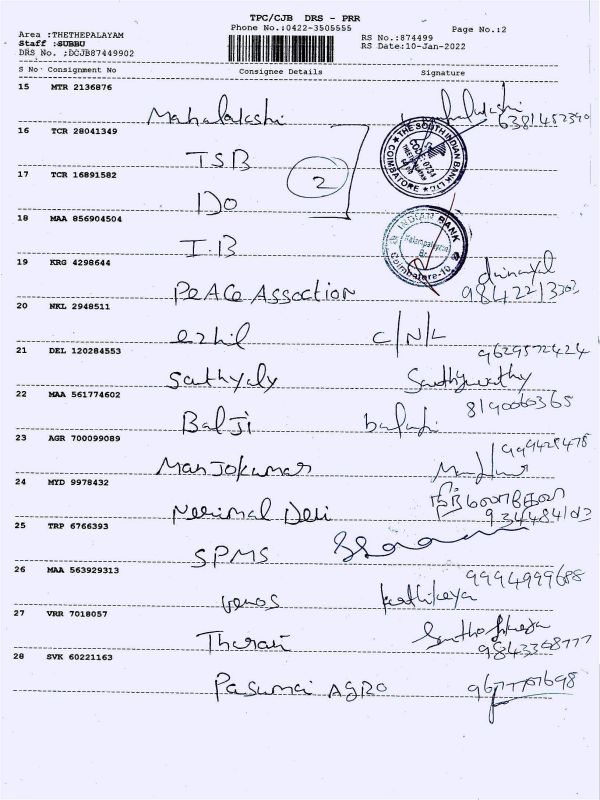 TPC/CJB DRS - PRR
Phone No.:0422-3505555
Page No.:2
Area :THETHEPALAYAM
Staff :SUBBU
DRS No. ;DCJB87449902
RS No.:874499
RS Date:10-Jan-2022
S No Consignment No Consignee Details Signature
15 MTR 2136876
Mahalakshi 6381452390
16 TCR 28041349
ISB
THE SOUTH INDIAN BANK LTD
COIMBATORE
2
17 TCR 16891582
Do
18 MAA 856904504
I.B
INDIAN BANK
Coimbatore-10
19 KRG 4298644
PeACe Assoction 9842213303
20 NKL 2948511
ezhil C/N/L
21 DEL 120284553
9629572424
Sathyaly Sathyavathy
22 MAA 561774602
8190060365
BalJi balaji
23 AGR 700099089
999429478
Manjokumar
24 MYD 9978432
Neerimal Devi
25 TRP 6766393
SPMS
26 MAA 563929313
9994999688
venos karthikeya
27 VRR 7018057
Tharani
9843368777
28 SVK 60221163
Pasumai AGRO